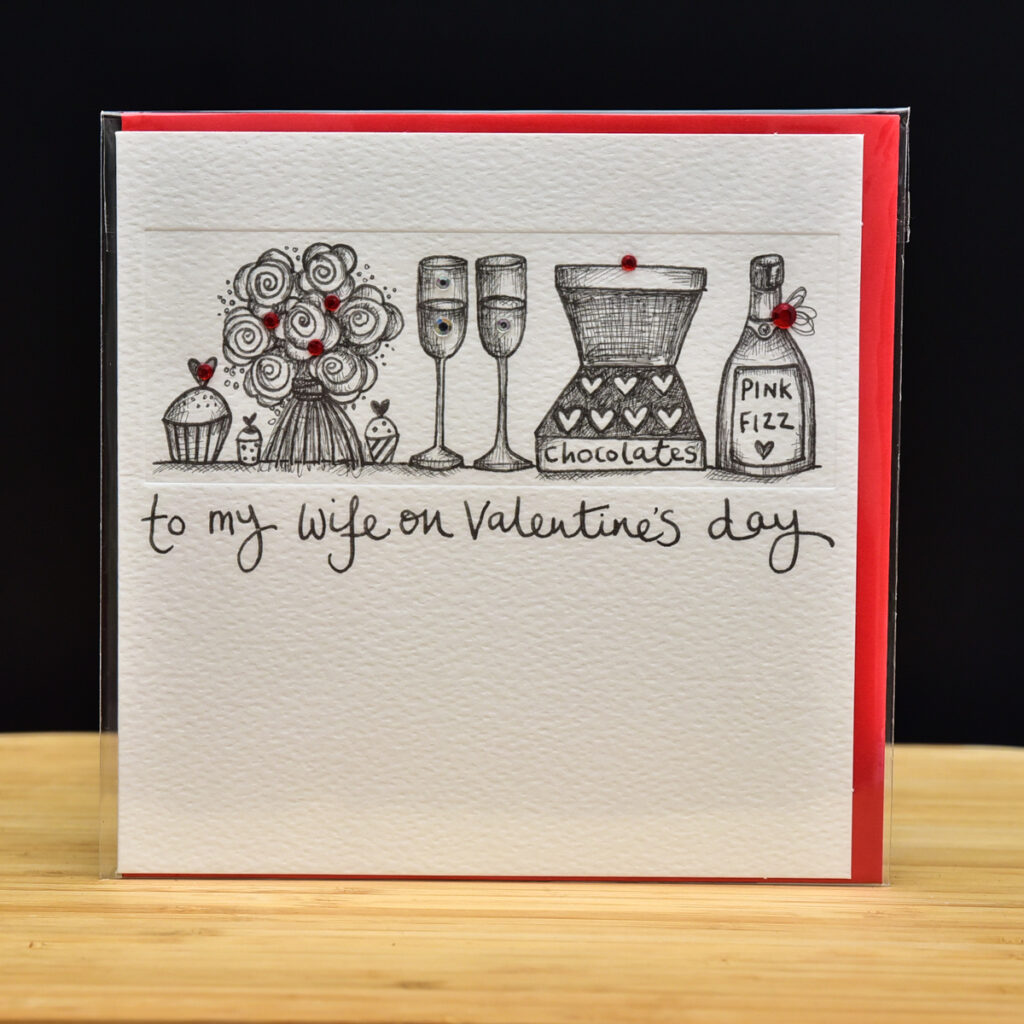 PINK
FIZZ
chocolates
to my wife on Valentine's day